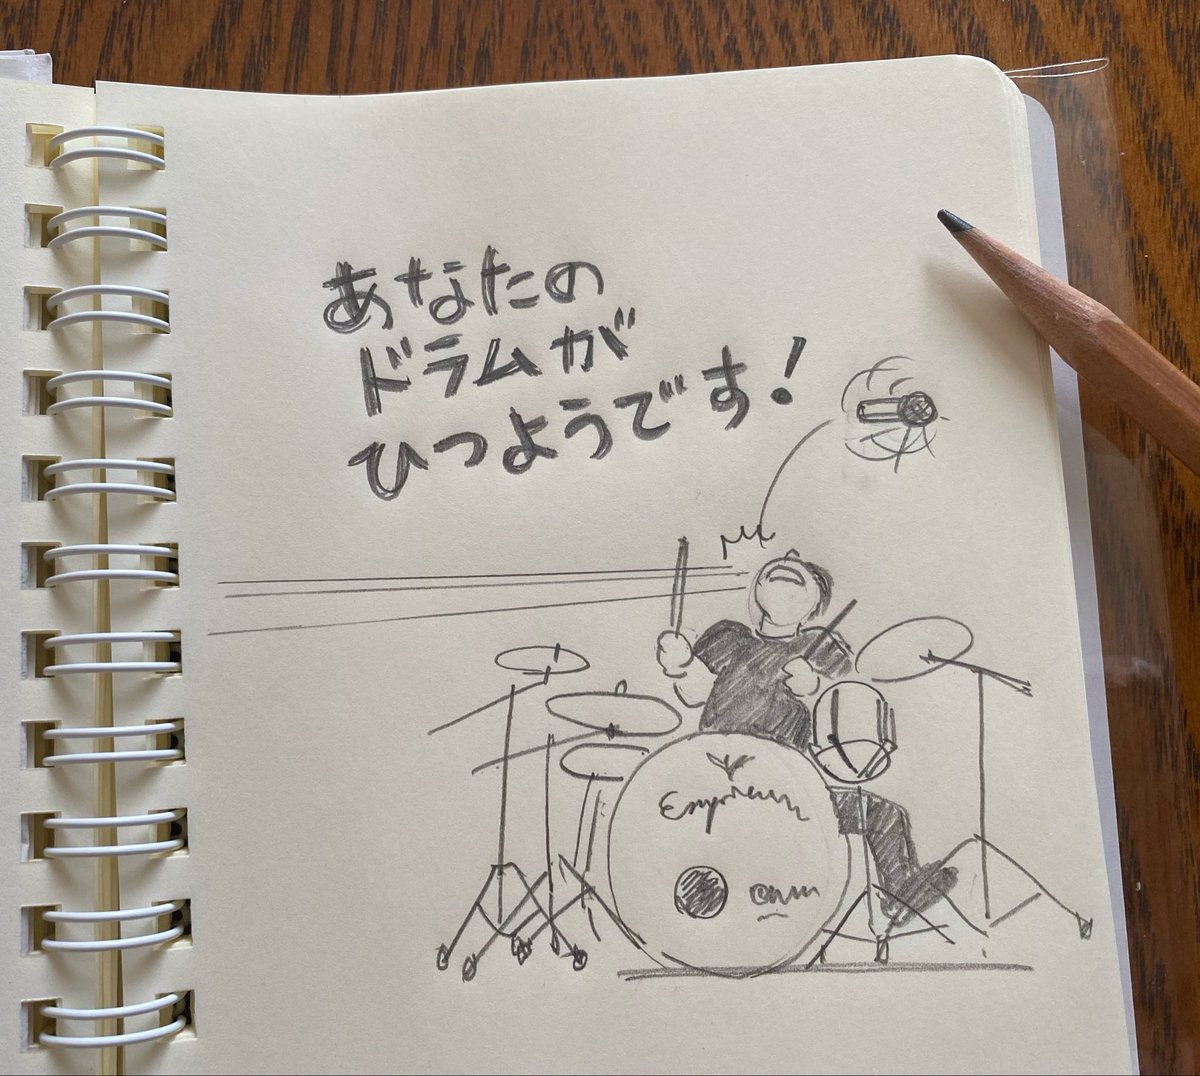 あなたの
ドラムが
ひつようです!